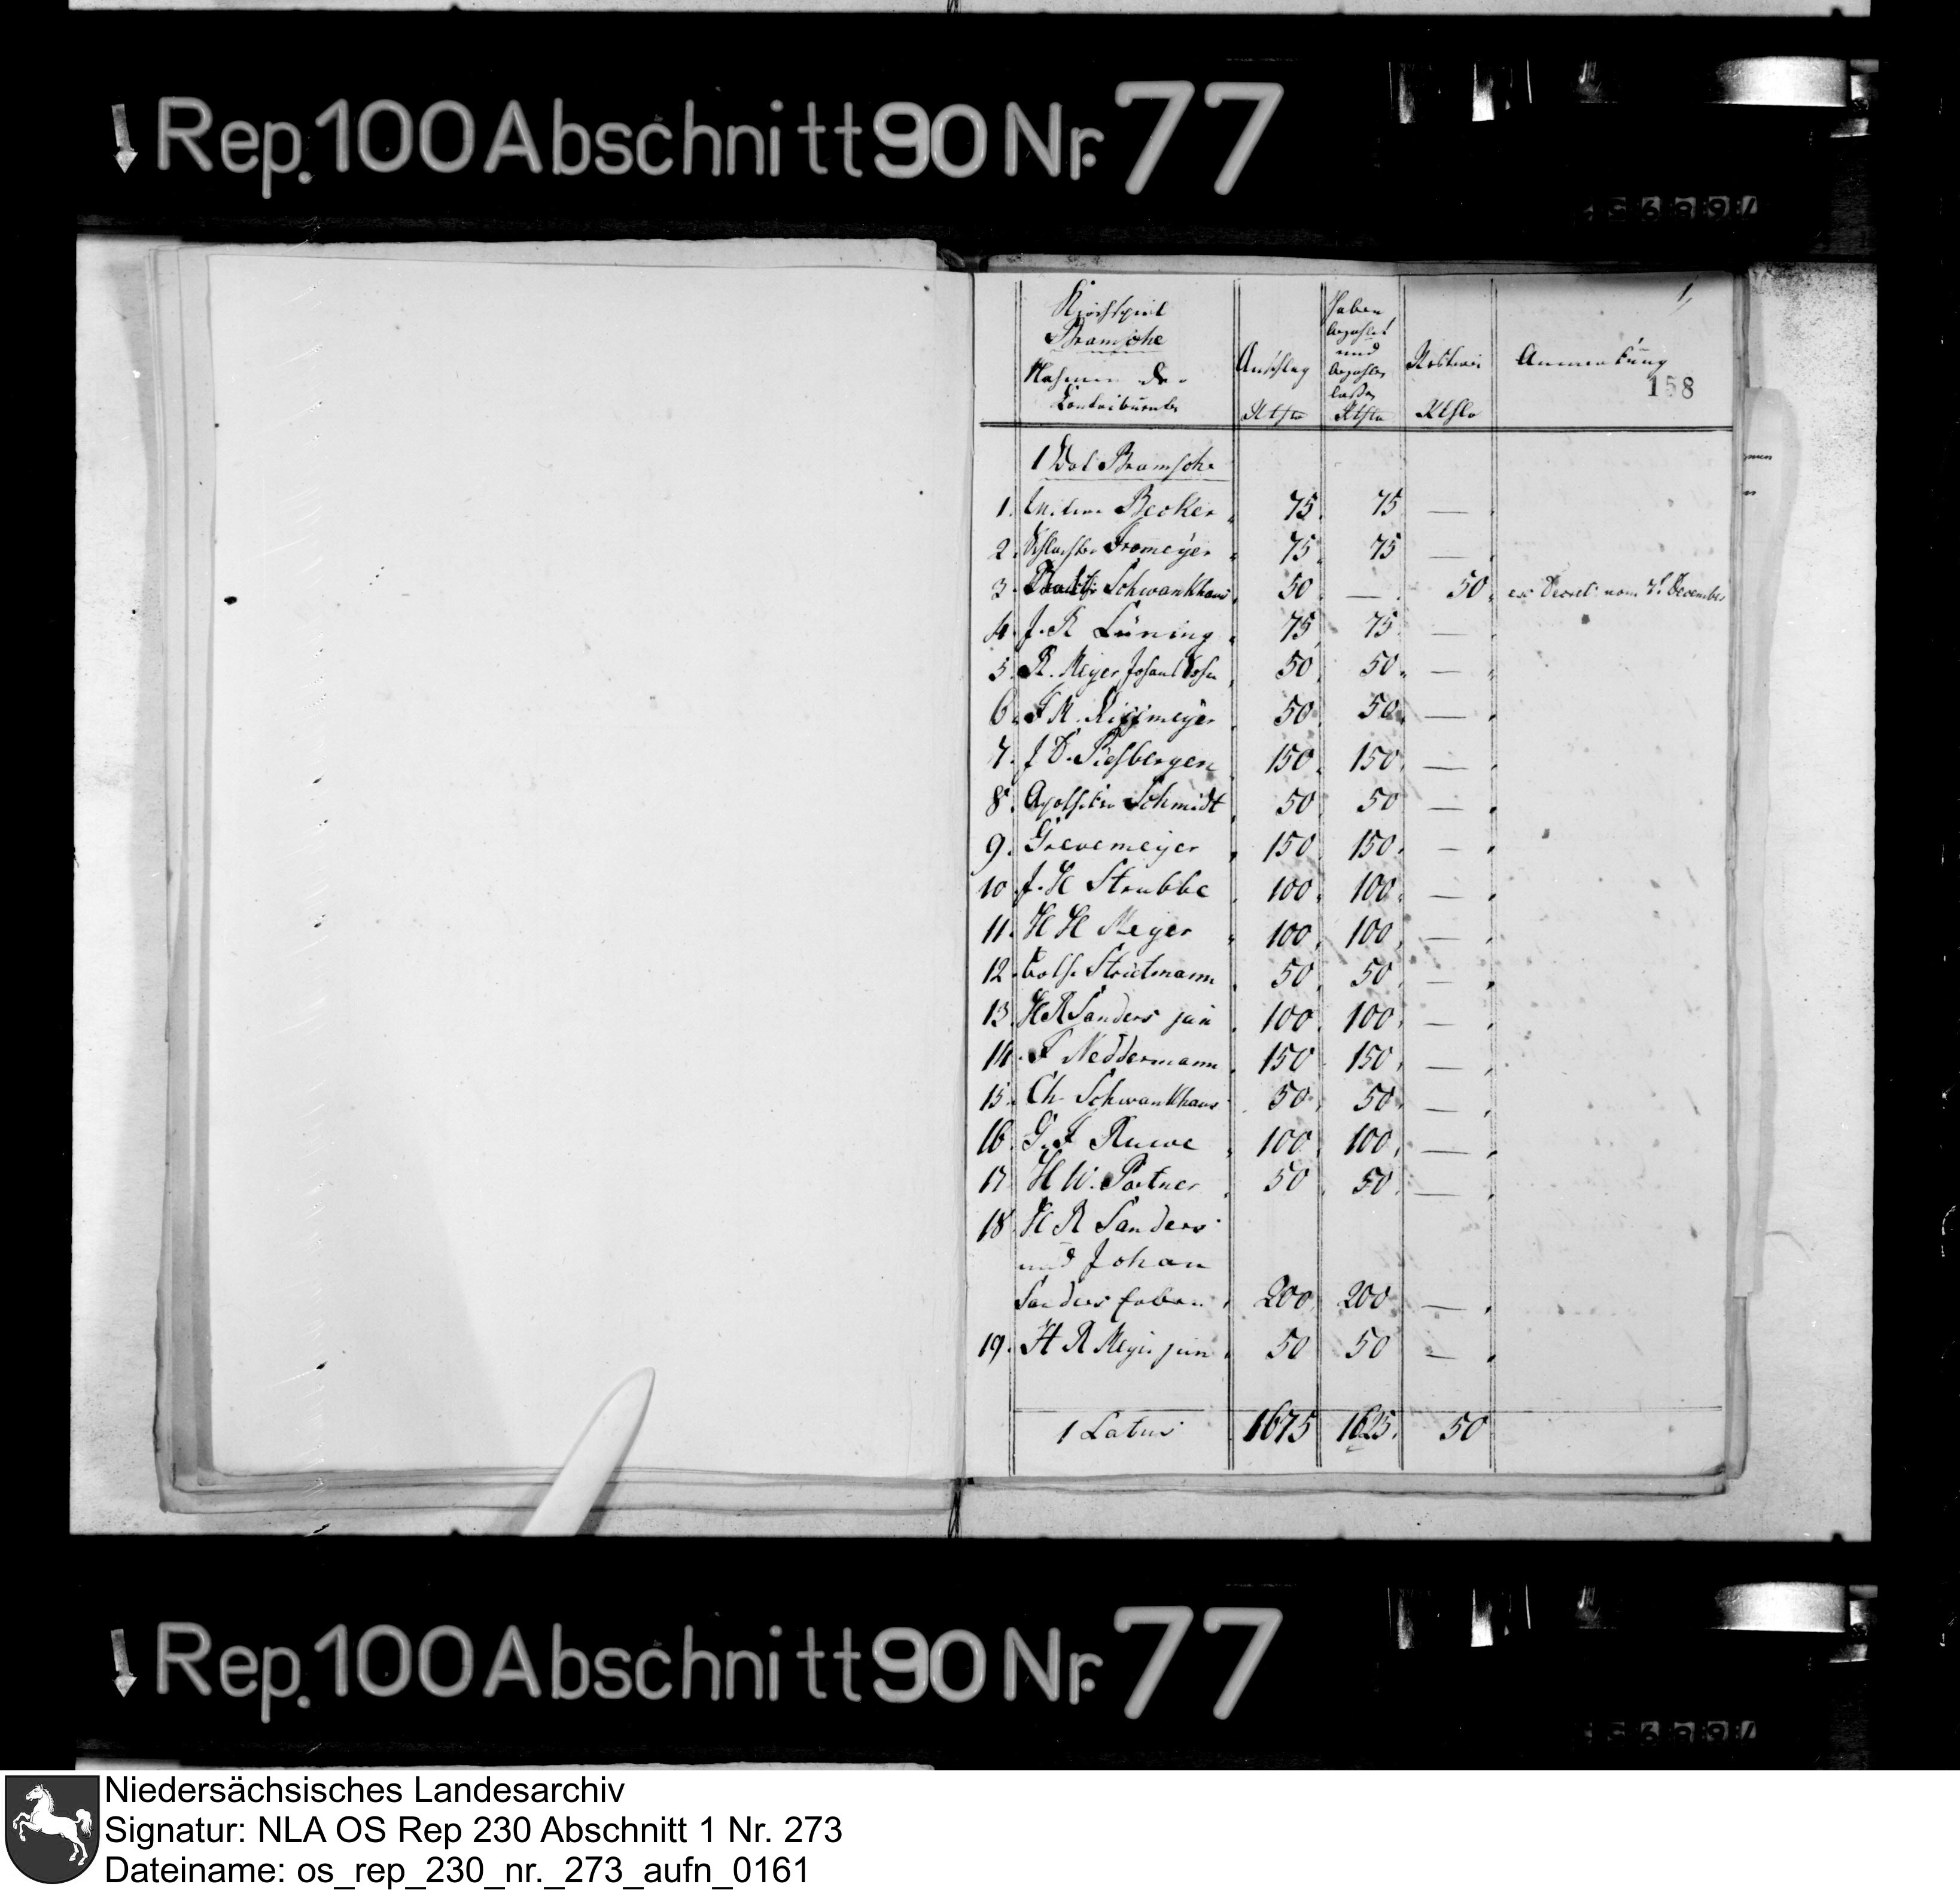 Rep. 100 Abschnitt 90 Nr. 77
1,
Kirchspiel
Bramsche
Nahmen der
Contribuenten
Anschlag
Rthlr
Haben
bezahlet
und
bezahlen
laßen
Rthlr
Restiren
Rthlr
Anmerkung
158
1 Bramsche
1. Becker 75. 75 —
2. Fromeyer 75. 75 —
3. Schwankhaus 50 — 50. ex Decret. vom December
4. J. R Lüning 75 75 —
5. R. Meyer 50 50. —
6. F R. 50. 50. —
7. J D. Piesbergen 150. 150. —
8. Schmidt 50. 50 —
9. Grevemeyer 150. 150. —
10 J. H Strubbe 100. 100. —
11. H H Meyer 100. 100. —
12. Strutmann 50. 50. —
13. H R Sanders jun 100. 100. —
14. F Neddermann 150. 150. —
15. Ch. Schwankhaus 50. 50. —
16. G. F Ruwe 100. 100. —
17 H W. Portner 50 50. —
18 H R Sanders
und Johan
Sanders 200. 200 —
19. H R Meyer jun 50 50 —
1 Latus 1675 1625. 50
Rep. 100 Abschnitt 90 Nr. 77
Niedersächsisches Landesarchiv
Signatur: NLA OS Rep 230 Abschnitt 1 Nr. 273
Dateiname: os_rep_230_nr._273_aufn_0161